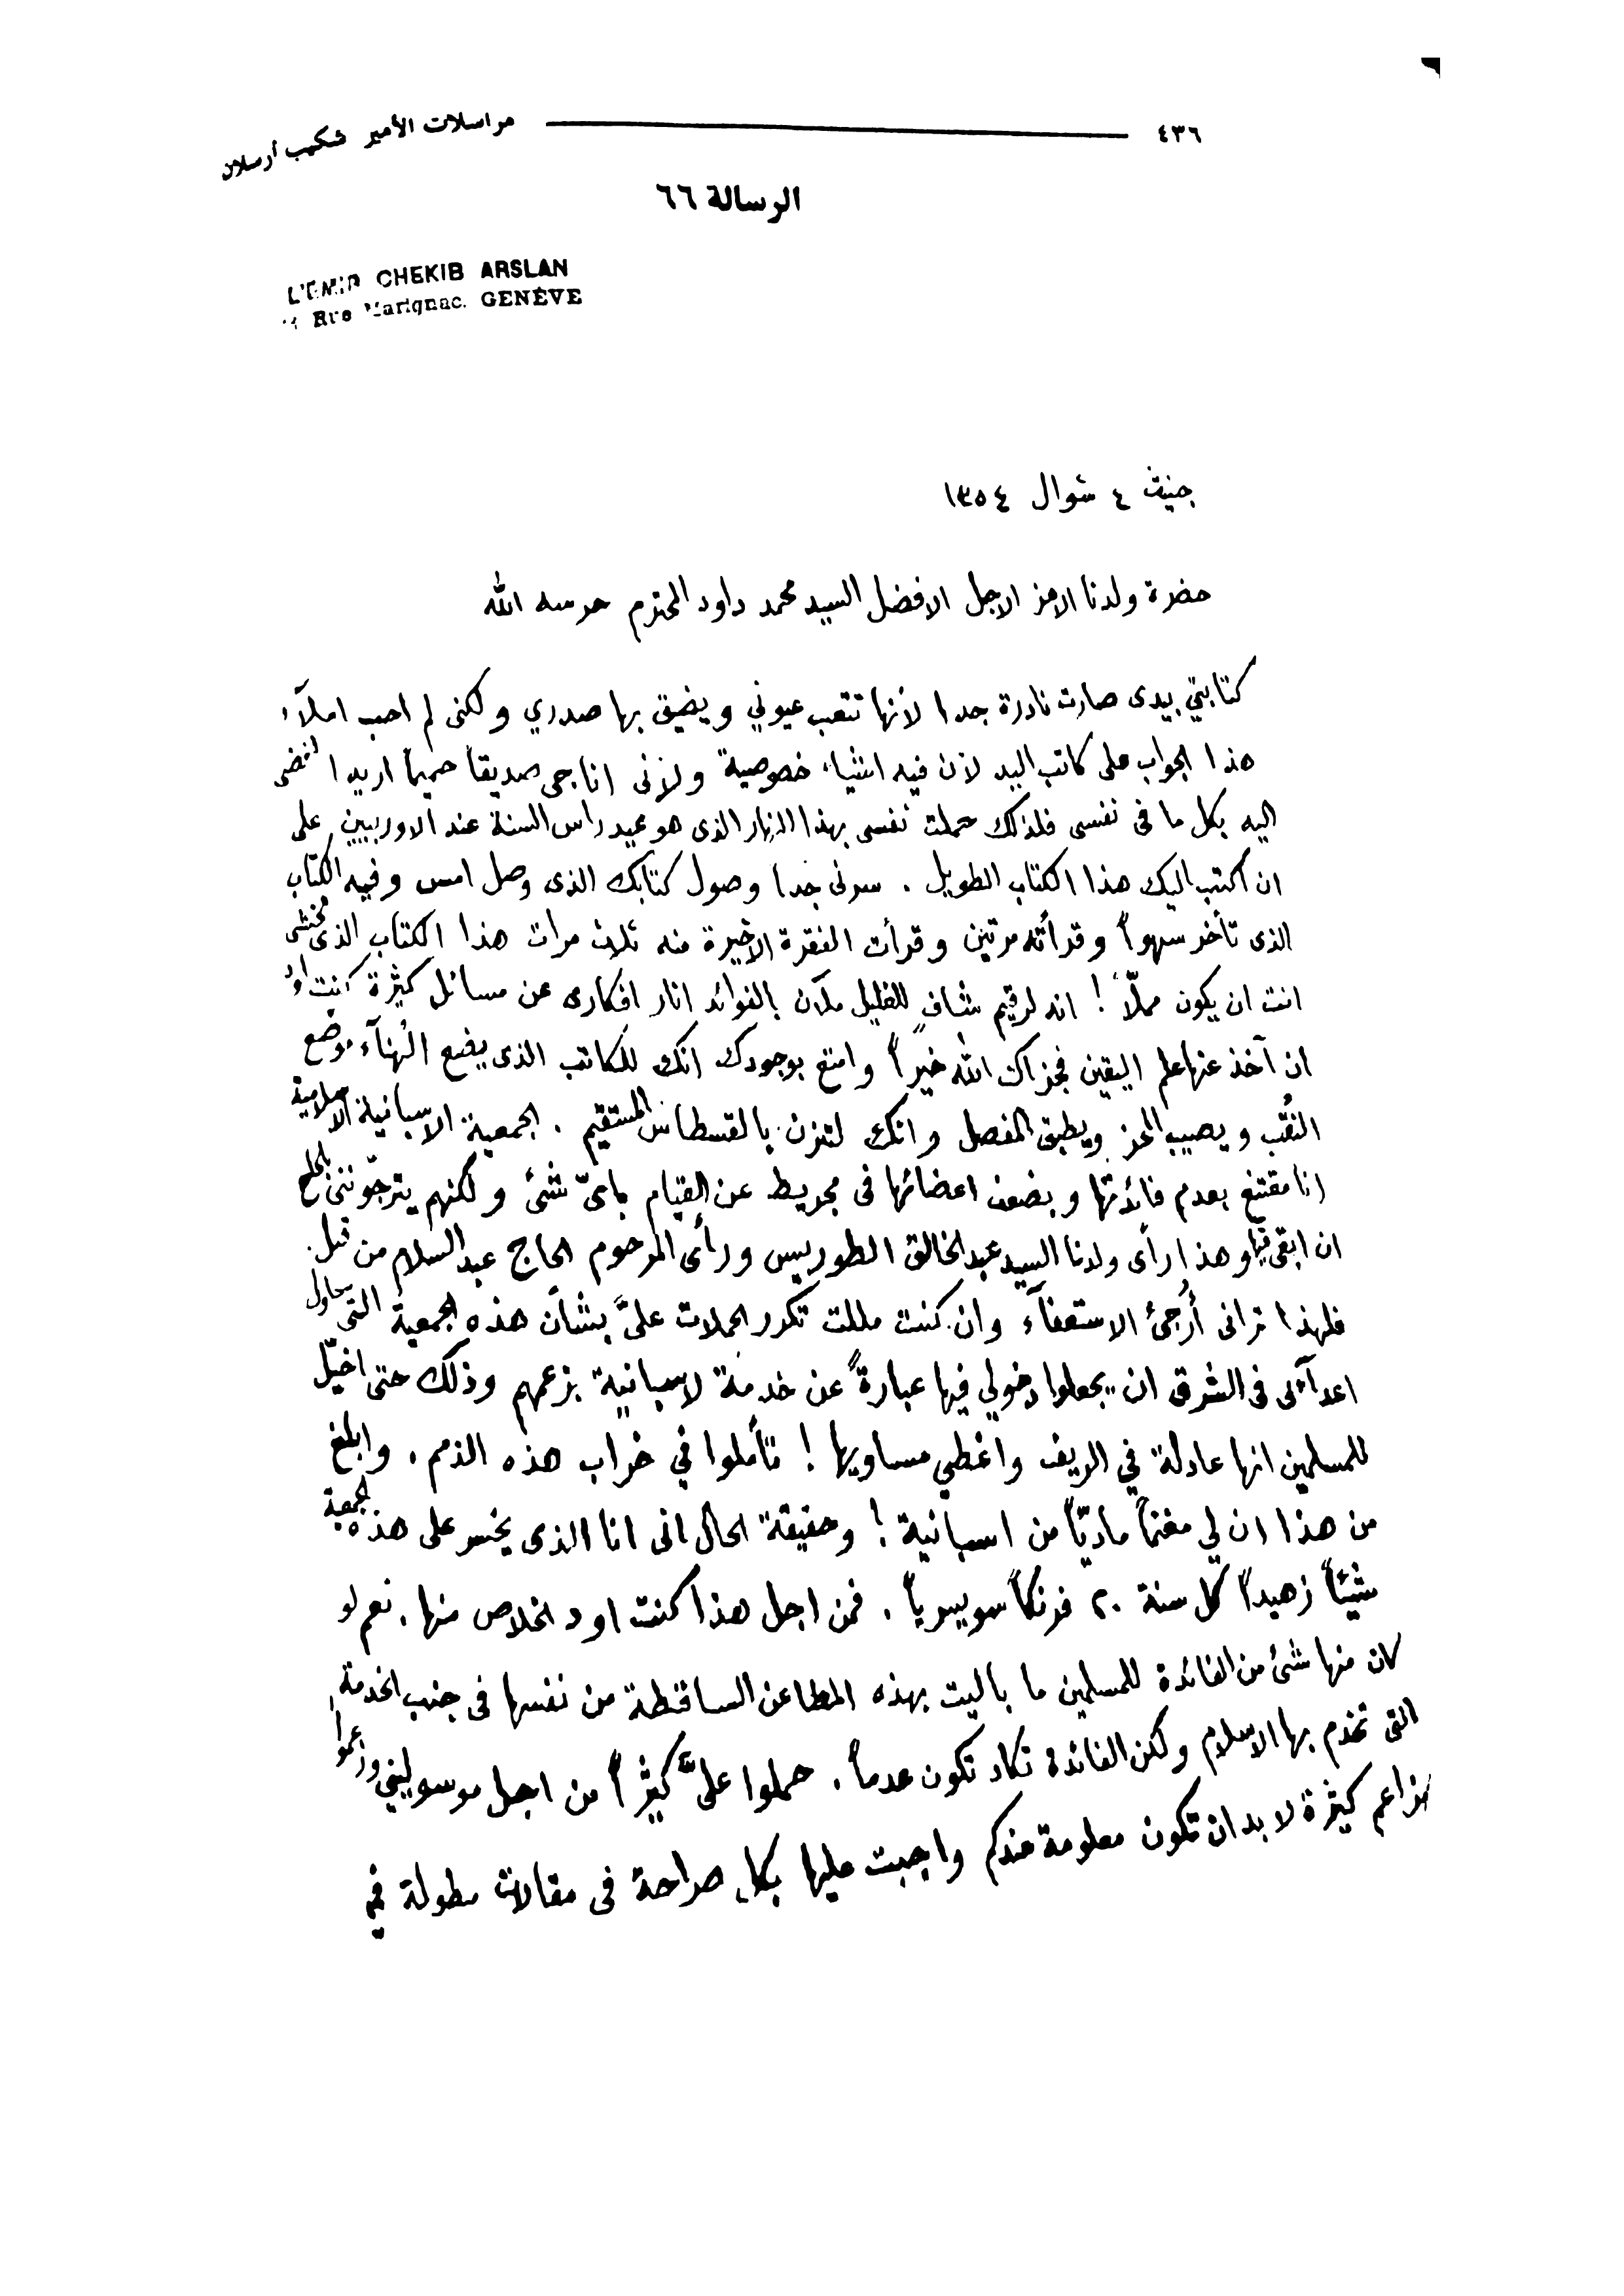 ٤٣٦ مراسلات الأمير شكيب أرسلان
الرسالة ٦٦
L'EMIR CHEKIB ARSLAN
Rue Marignac. GENÈVE
جنيف ٤ شوال ١٣٥٤
حضرة ولدنا الاعز الاجل الافضل السيد محمد داود المحترم حرسه الله
كتابتي بيدى صارت نادرة جدا لأنها تتعب عيوني ويضيق بها صدري ولكنى لم احب املآء
هذا الجواب على كاتب اليد لان فيه اشياء خصوصية ولأنى اناجى صديقاً حميماً اريد ا افضى
اليه بكل ما فى نفسى فلذلك حملت نفسى بهذا النهار الذى هو عيد راس السنة عند الاوربيين على
ان اكتب اليك هذا الكتاب الطويل . سرنى جدا وصول كتابك الذى وصل امس وفيه الكتاب
الذى تأخر سهواً وقرأته مرتين وقرأت الفقرة الاخيرة منه ثلاث مرات هذا الكتاب الذى تخشى
انت ان يكون مملّاً ! انه لرقيم شافٍ للغليل ملآن بالفوائد انار افكارى عن مسائل كثيرة كنت اود
ان آخذ عنها علم اليقين فجزاك الله خيراً وامتع بوجودك انك للكاتب الذى يضع الهنآء موضع
النقب ويصيب المحز ويطبق المفصل وانك لتزن بالقسطاس المستقيم . الجمعية الاسبانية الاسلامية
انا مقتنع بعدم فائدتها وبضعف اعضائها فى مجريط عن القيام بأىّ شئ ولكنهم يترجّوننى بالحاح
ان ابقى فيها وهذا رأى ولدنا السيد عبد الخالق الطوريس ورأى المرحوم الحاج عبد السلام من قبل .
فلهذا ترانى أُرجئ الاستعفآء وان كنت مللت تكرر الحملات علىَّ بشأن هذه الجمعية التى يحاول
اعدآئى فى الشرق ان يجعلوا دخولي فيها عبارةً عن خدمة لاسبانية بزعمهم وذلك حتى اخيّل
للمسلمين انها عادلة في الريف واغطي مساويها ! تأملوا في خراب هذه الذمم . وابلغ
من هذا ان لي مغنماً ماديّاً من اسبانية ! وحقيقة الحال انى انا الذى يخسر على هذه الجمعية
شيئاً زهيداً كل سنة ٢٠ فرنكاً سويسرياً . فمن اجل هذا كنت اود الخلاص منها . نعم لو
كان منها شئ من الفائدة للمسلمين ما باليت بهذه المطاعن الساقطة من نفسها فى جنب الخدمة
التى تخدم بها الاسلام ولكن الفائدة تكاد تكون عدماً . حملوا علىَّ كثيراً من اجل موسوليني وزعموا
مزاعم كثيرة لا بد ان تكون معلومة عندكم واجبت عليها بكل صراحة فى مقالات مطولة في